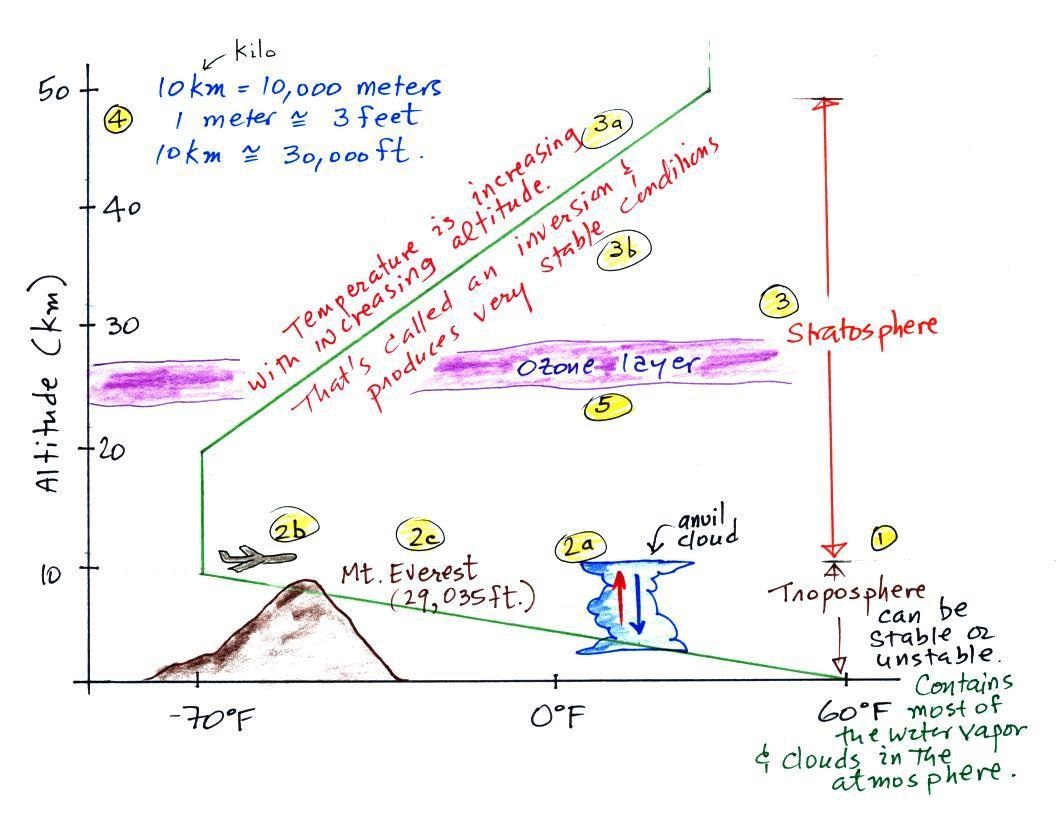 kilo
50
10km = 10,000 meters
4
1 meter ≅ 3 feet
10km ≅ 30,000 ft.
3a
Temperature is increasing
with increasing altitude.
That's called an inversion &
produces very stable conditions
3b
40
3
30
Stratosphere
Ozone layer
5
Altitude (km)
20
2b
2c
2a
anvil
cloud
1
10
Mt. Everest
(29,035 ft.)
Troposphere
can be
stable or
unstable.
Contains
most of
the water vapor
& clouds in the
atmosphere.
-70°F
0°F
60°F